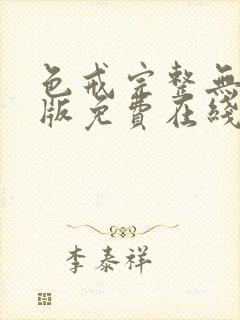 色戒完整無
版免費在綫
李泰祥